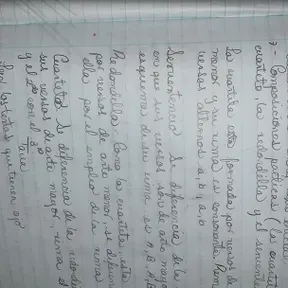 7- Composiciones poéticas (la cuarteta
cuarteto la redondilla y el serventes
La cuarteta esta formada por versos de
menor y su rima es consonante. Rim
versos alternos a, b y a, b
Serventesio Se diferencia de la
en que sus versos son de arte mayo
esquema de su rima es A, B, A, B
Redondilla Como la cuarteta, esta
por versos de arte menor, se diferen
ella por el empleo de la rima
Cuarteto Se diferencia de la redondi
sus versos de arte mayor, rima el
y el 2º con el 3º
que tienen